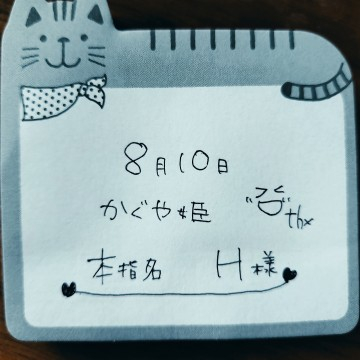 8月10日
かぐや姫 thx
本指名 H様